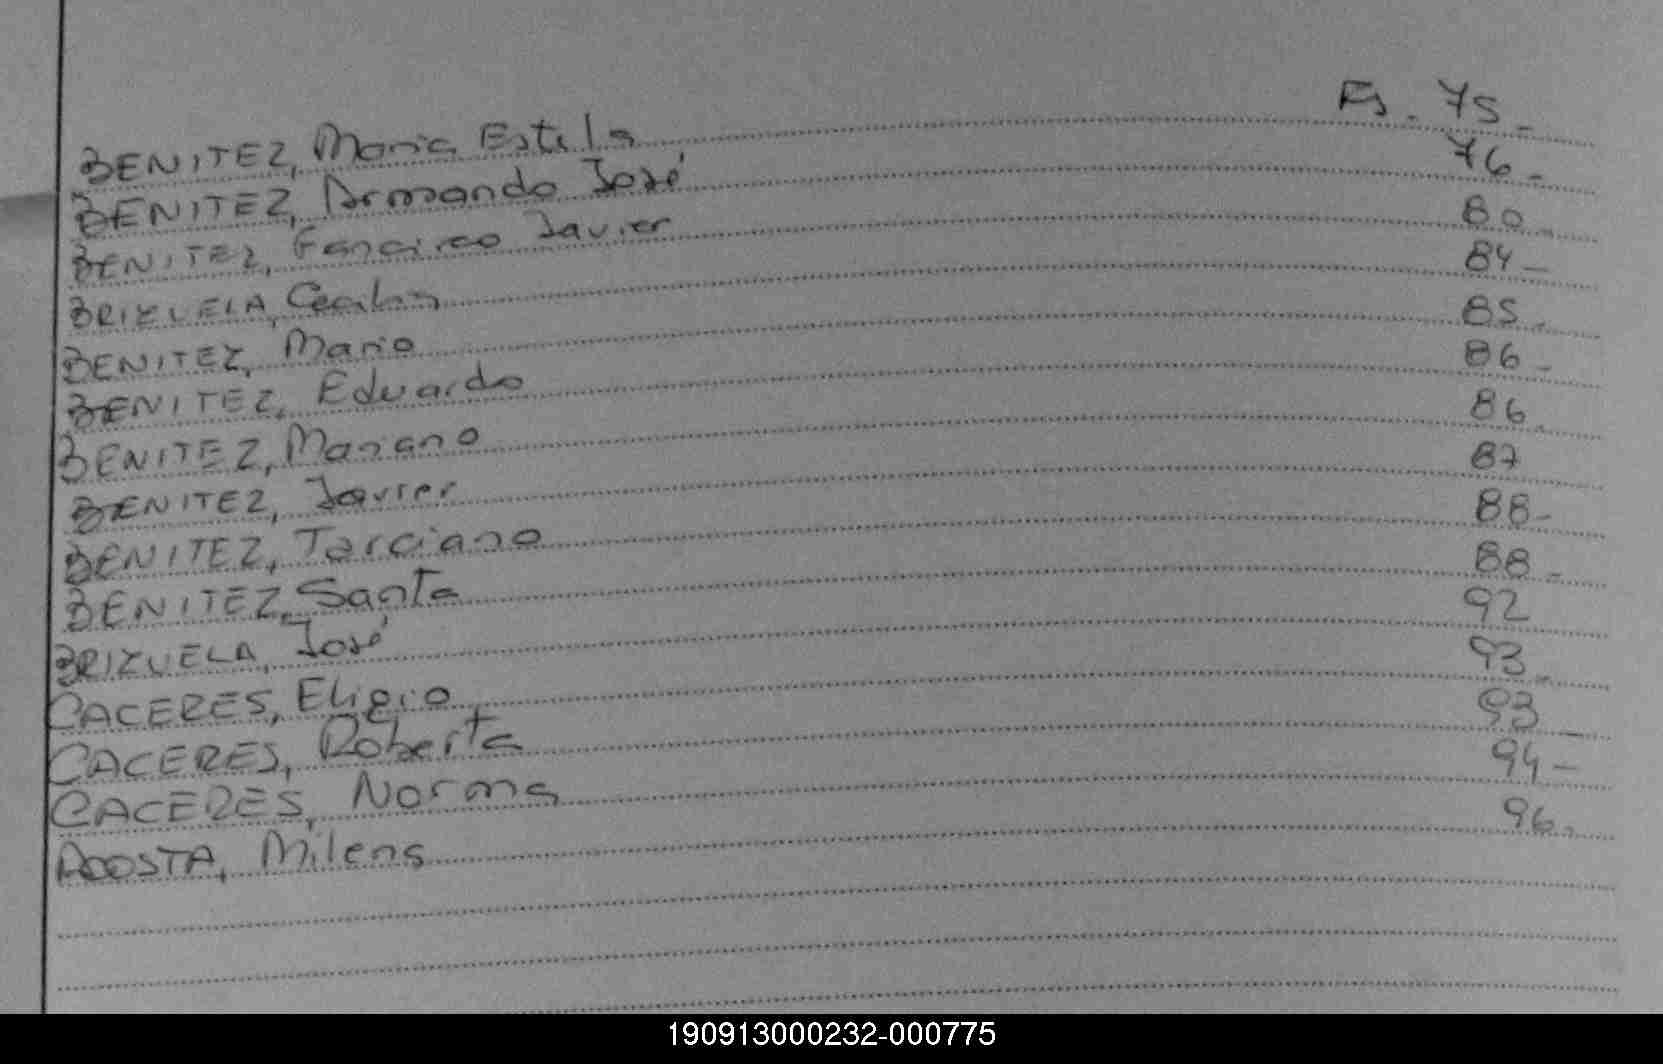 BENITEZ, Maria Estela Fs. 75-
BENITEZ, Armando José 76-
BENITEZ, Francisco Javier 80-
BRIZUELA, Cecilia 84-
BENITEZ, Mario 85-
BENITEZ, Eduardo 86-
BENITEZ, Mariano 86.
BENITEZ, Javier 87
BENITEZ, Tarciano 88-
BENITEZ, Santa 88-
BRIZUELA, José 92
CACERES, Eligio 93-
CACERES, Roberta 93-
CACERES, Norma 94-
ACOSTA, Milena 96.
190913000232-000775